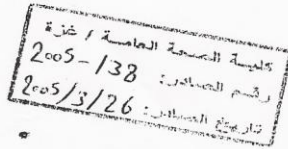 كلية الصحة العامة / غزة
رقم الصادر: 2005-/138
تاريخ الصادر: 2005/3/26